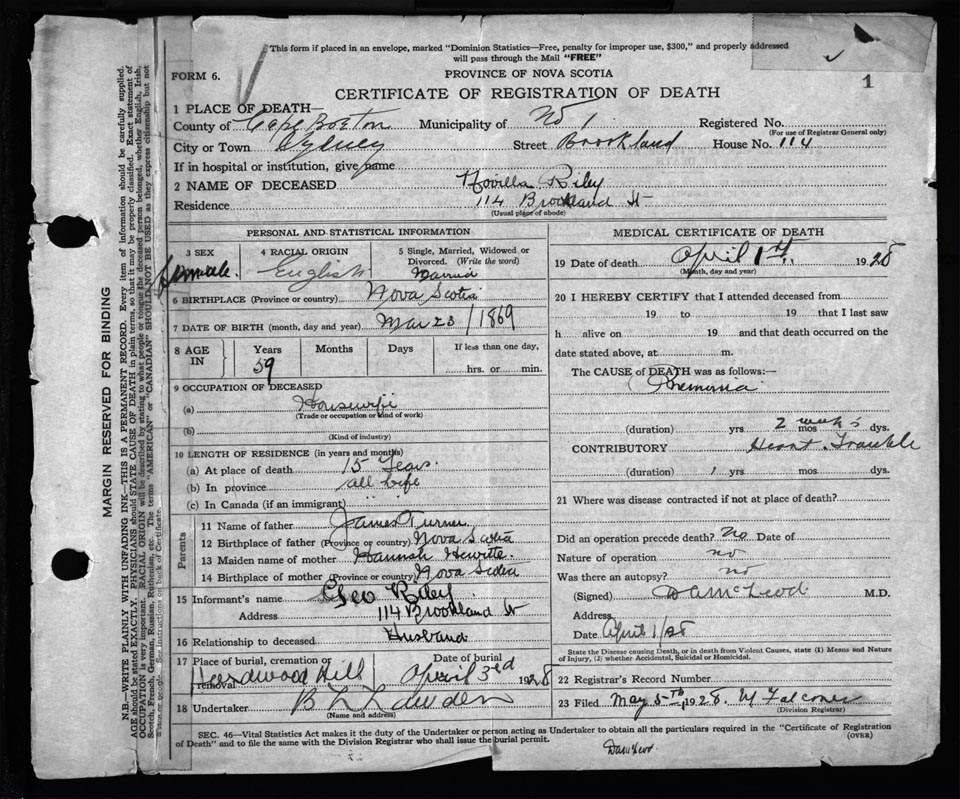 This form if placed in an envelope, marked "Dominion Statistics—Free, penalty for improper use, $300," and properly addressed
will pass through the Mail "FREE"
FORM 6.
PROVINCE OF NOVA SCOTIA
1
CERTIFICATE OF REGISTRATION OF DEATH
1 PLACE OF DEATH—
County of Cape Breton Municipality of No 1 Registered No.
(For use of Registrar General only)
City or Town Sydney Street Brookland House No. 114
If in hospital or institution, give name
2 NAME OF DECEASED Riley
Residence 114 Brookland St
(Usual place of abode)
PERSONAL AND STATISTICAL INFORMATION
3 SEX 4 RACIAL ORIGIN 5 Single, Married, Widowed or
Divorced. (Write the word)
Female. English Married
6 BIRTHPLACE (Province or country) Nova Scotia
7 DATE OF BIRTH (month, day and year) Mar 23 / 1869
8 AGE IN Years Months Days If less than one day,
59 hrs. or min.
9 OCCUPATION OF DECEASED
(a) Housewife
(Trade or occupation or kind of work)
(b)
(Kind of industry)
10 LENGTH OF RESIDENCE (in years and months)
(a) At place of death 15 Years.
(b) In province all life
(c) In Canada (if an immigrant)
Parents
11 Name of father James Turner
12 Birthplace of father (Province or country) Nova Scotia
13 Maiden name of mother Hannah Hewitte.
14 Birthplace of mother (Province or country) Nova Scotia
15 Informant's name Geo Riley
Address 114 Brookland St
16 Relationship to deceased Husband
17 Place of burial, cremation or removal Date of burial
Hardwood Hill April 3rd 1928
18 Undertaker
(Name and address)
MEDICAL CERTIFICATE OF DEATH
19 Date of death April 1st 1928
(Month, day and year)
20 I HEREBY CERTIFY that I attended deceased from
19 to 19 that I last saw
h alive on 19 and that death occurred on the
date stated above, at m.
The CAUSE of DEATH was as follows:—
(duration) yrs 2 weeks mos dys.
CONTRIBUTORY Heart Trouble
(duration) 1 yrs mos. dys.
21 Where was disease contracted if not at place of death?
Did an operation precede death? No Date of
Nature of operation no
Was there an autopsy? no
(Signed) M.D.
Address
Date April 1/28
State the Disease causing Death, or in death from Violent Causes, state (1) Means and Nature
of Injury, (2) whether Accidental, Suicidal or Homicidal.
22 Registrar's Record Number
23 Filed May 5th, 1928. Falconer
(Division Registrar)
SEC. 46—Vital Statistics Act makes it the duty of the Undertaker or person acting as Undertaker to obtain all the particulars required in the "Certificate of Registration
of Death" and to file the same with the Division Registrar who shall issue the burial permit.
(OVER)
MARGIN RESERVED FOR BINDING
N.B.—WRITE PLAINLY WITH UNFADING INK—THIS IS A PERMANENT RECORD. Every item of information should be carefully supplied.
AGE should be stated EXACTLY. PHYSICIANS should STATE CAUSE OF DEATH in plain terms, so that it may be properly classified. Exact statement of
OCCUPATION is very important. RACIAL ORIGIN will be described by stating to what people or tongue the deceased person belonged, whether English, Irish,
Scotch, French, German, Russian, Ruthenian, etc. The terms "AMERICAN" or "CANADIAN" SHOULD NOT BE USED as they express citizenship but not
race or people. See instructions on back of Certificate.